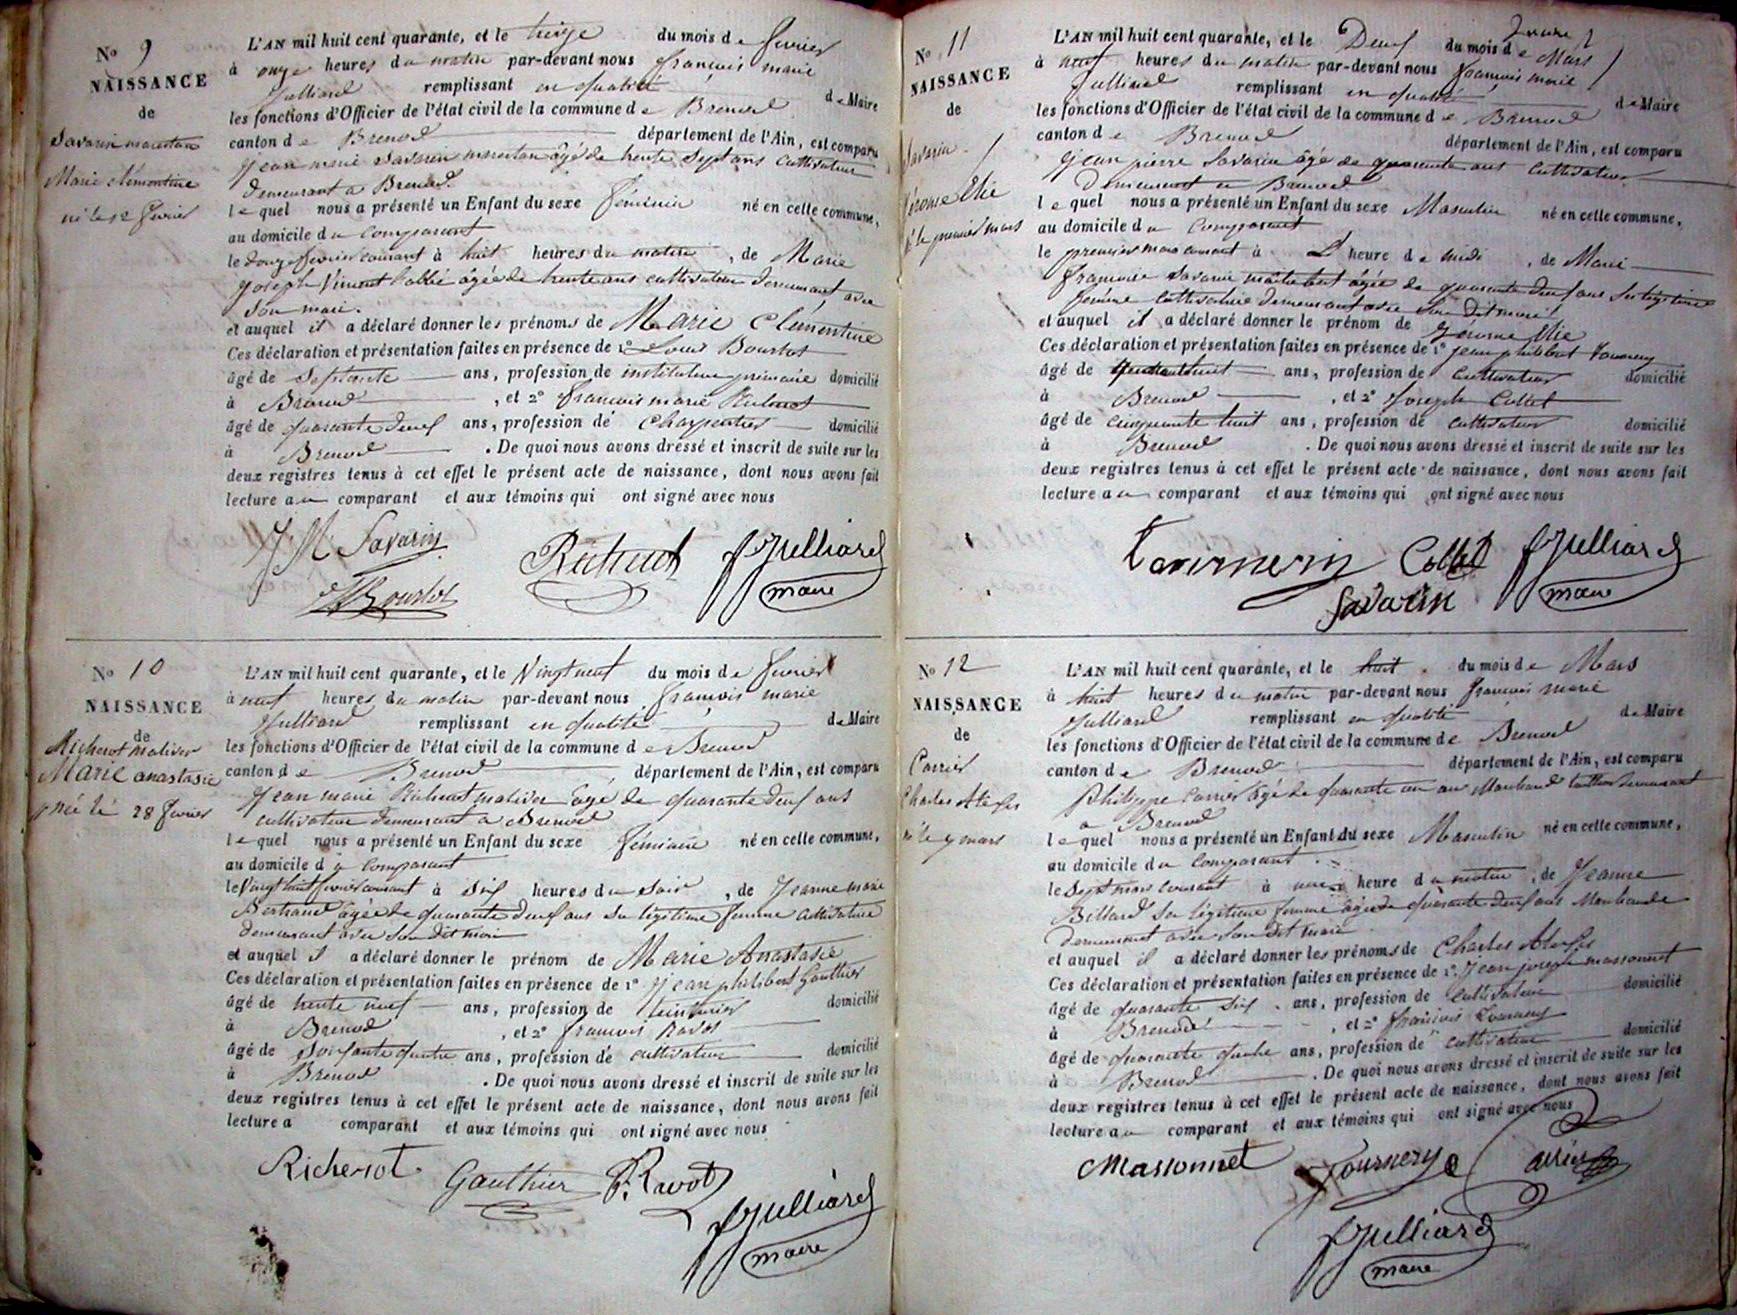 N° 9
NAISSANCE
de
Savarin
Marie clémentine
né le 12 février
L'AN mil huit cent quarante, et le treize du mois de février
à onze heures du matin par-devant nous françois marie
Julliard remplissant en qualité de Maire
les fonctions d'Officier de l'état civil de la commune de Brenod
canton de Brenod département de l'Ain, est comparu
Jean marie Savarin âgé de trente sept ans cultivateur
demeurant a Brenod.
lequel nous a présenté un Enfant du sexe féminin né en cette commune,
au domicile du comparant
le douze février courant à huit heures du matin, de Marie
Joseph Vincent âgée de trente ans cultivatrice demeurant avec
son mari.
et auquel il a déclaré donner les prénoms de Marie Clémentine
Ces déclaration et présentation faites en présence de 1° Louis
âgé de septante ans, profession de instituteur primaire domicilié
à Brenod, et 2° françois marie
âgé de quarante deux ans, profession de Charpentier domicilié
à Brenod. De quoi nous avons dressé et inscrit de suite sur les
deux registres tenus à cet effet le présent acte de naissance, dont nous avons fait
lecture au comparant et aux témoins qui ont signé avec nous
JM Savarin
fJulliard
maire
N° 10
NAISSANCE
de
Richerot
Marie anastasie
née le 28 février
L'AN mil huit cent quarante, et le Vingt neuf du mois de février
à neuf heures du matin par-devant nous françois marie
Julliard remplissant en qualité de Maire
les fonctions d'Officier de l'état civil de la commune de Brenod
canton de Brenod département de l'Ain, est comparu
Jean marie Richerot âgé de quarante deux ans
cultivateur demeurant a Brenod
lequel nous a présenté un Enfant du sexe féminin né en cette commune,
au domicile du comparant
le Vingt huit février courant à six heures du soir, de Jeanne marie
Bertrand âgée de quarante deux ans sa légitime femme cultivatrice
demeurant avec son dit mari
et auquel il a déclaré donner le prénom de Marie Anastasie
Ces déclaration et présentation faites en présence de 1° Jean philibert Gauthier
âgé de trente neuf ans, profession de teinturier domicilié
à Brenod, et 2° françois Ravot
âgé de soixante quatre ans, profession de cultivateur domicilié
à Brenod. De quoi nous avons dressé et inscrit de suite sur les
deux registres tenus à cet effet le présent acte de naissance, dont nous avons fait
lecture a comparant et aux témoins qui ont signé avec nous
Richerot Gauthier Ravot
fJulliard
maire
N° 11
NAISSANCE
de
Savarin
Jérome Elie
né le premier mars
L'AN mil huit cent quarante, et le Deux du mois de Mars
à neuf heures du matin par-devant nous françois marie
Julliard remplissant en qualité de Maire
les fonctions d'Officier de l'état civil de la commune de Brenod
canton de Brenod département de l'Ain, est comparu
Jean pierre Savarin âgé de quarante ans cultivateur
demeurant a Brenod
lequel nous a présenté un Enfant du sexe Masculin né en cette commune,
au domicile du comparant
le premier mars courant à L'heure de midi, de Marie
françoise Savarin âgée de quarante deux ans sa légitime
femme cultivatrice demeurant avec son dit mari
et auquel il a déclaré donner le prénom de Jérome Elie
Ces déclaration et présentation faites en présence de 1° Jean philibert
âgé de ans, profession de cultivateur domicilié
à Brenod, et 2° Joseph Collet
âgé de cinquante huit ans, profession de cultivateur domicilié
à Brenod. De quoi nous avons dressé et inscrit de suite sur les
deux registres tenus à cet effet le présent acte de naissance, dont nous avons fait
lecture au comparant et aux témoins qui ont signé avec nous
Collet fJulliard
Savarin maire
N° 12
NAISSANCE
de
Carrier
Charles
né le 7 mars
L'AN mil huit cent quarante, et le huit du mois de Mars
à huit heures du matin par-devant nous françois marie
Julliard remplissant en qualité de Maire
les fonctions d'Officier de l'état civil de la commune de Brenod
canton de Brenod département de l'Ain, est comparu
Philippe Carrier âgé de quarante un ans Marchand demeurant
a Brenod
lequel nous a présenté un Enfant du sexe Masculin né en cette commune,
au domicile du comparant.
le sept mars courant à une heure du matin, de Jeanne
Billard sa légitime femme âgée de quarante deux ans Marchande
demeurant avec son dit mari
et auquel il a déclaré donner les prénoms de Charles
Ces déclaration et présentation faites en présence de 1° Jean joseph massonnet
âgé de quarante six ans, profession de cultivateur domicilié
à Brenod, et 2° françois Tournery
âgé de quarante quatre ans, profession de cultivateur domicilié
à Brenod. De quoi nous avons dressé et inscrit de suite sur les
deux registres tenus à cet effet le présent acte de naissance, dont nous avons fait
lecture au comparant et aux témoins qui ont signé avec nous
Massonnet Tournery Carrier
fJulliard
maire